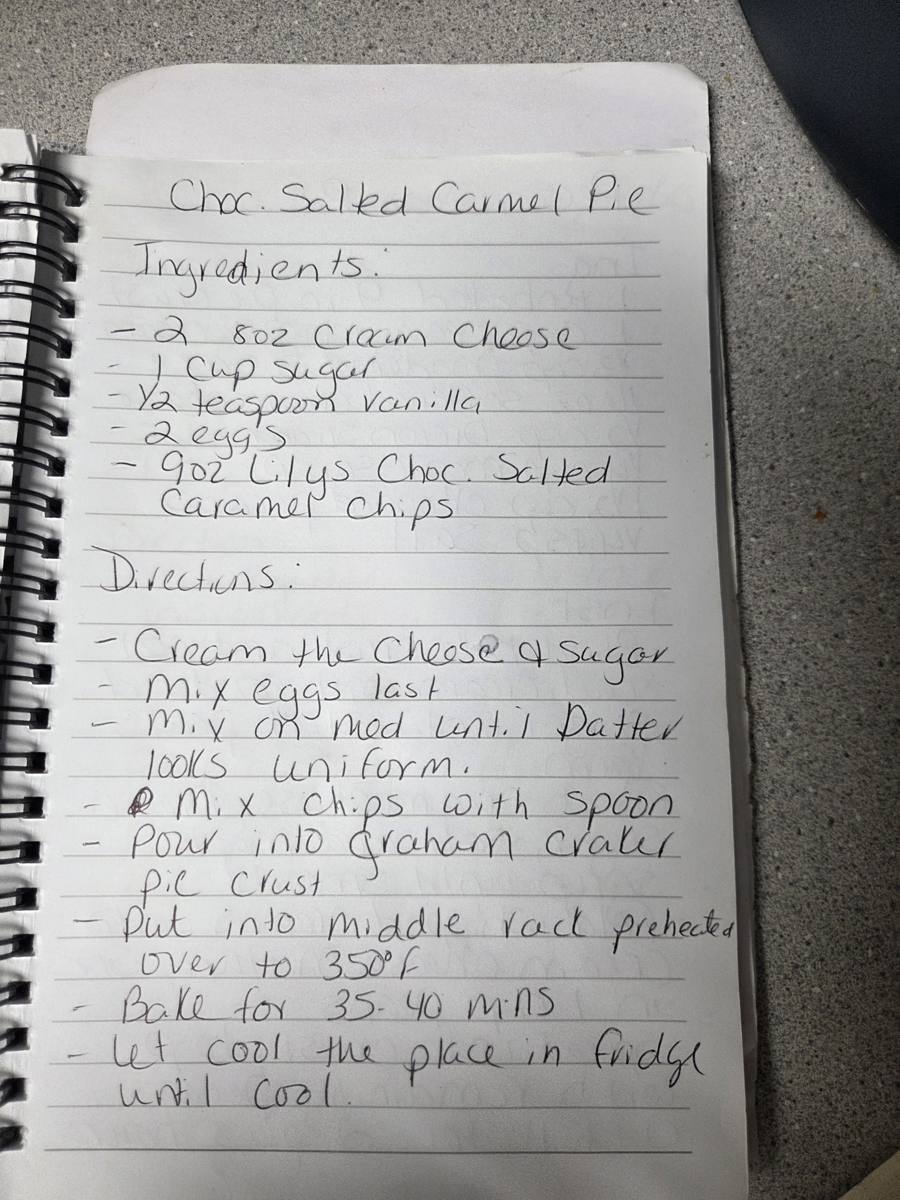 Choc. Salted Carmel Pie
Ingredients:
- 2 8oz Cream Cheese
- 1 Cup sugar
- 1/2 teaspoon vanilla
- 2 eggs
- 9oz Lilys Choc. Salted
Caramel Chips
Directions:
- Cream the Cheese & Sugar
- Mix eggs last
- Mix on med until batter
looks uniform.
- Mix chips with spoon
- Pour into graham craker
pie crust
- Put into middle rack preheated
over to 350°F
- Bake for 35-40 mins
- Let cool the place in fridge
until cool.